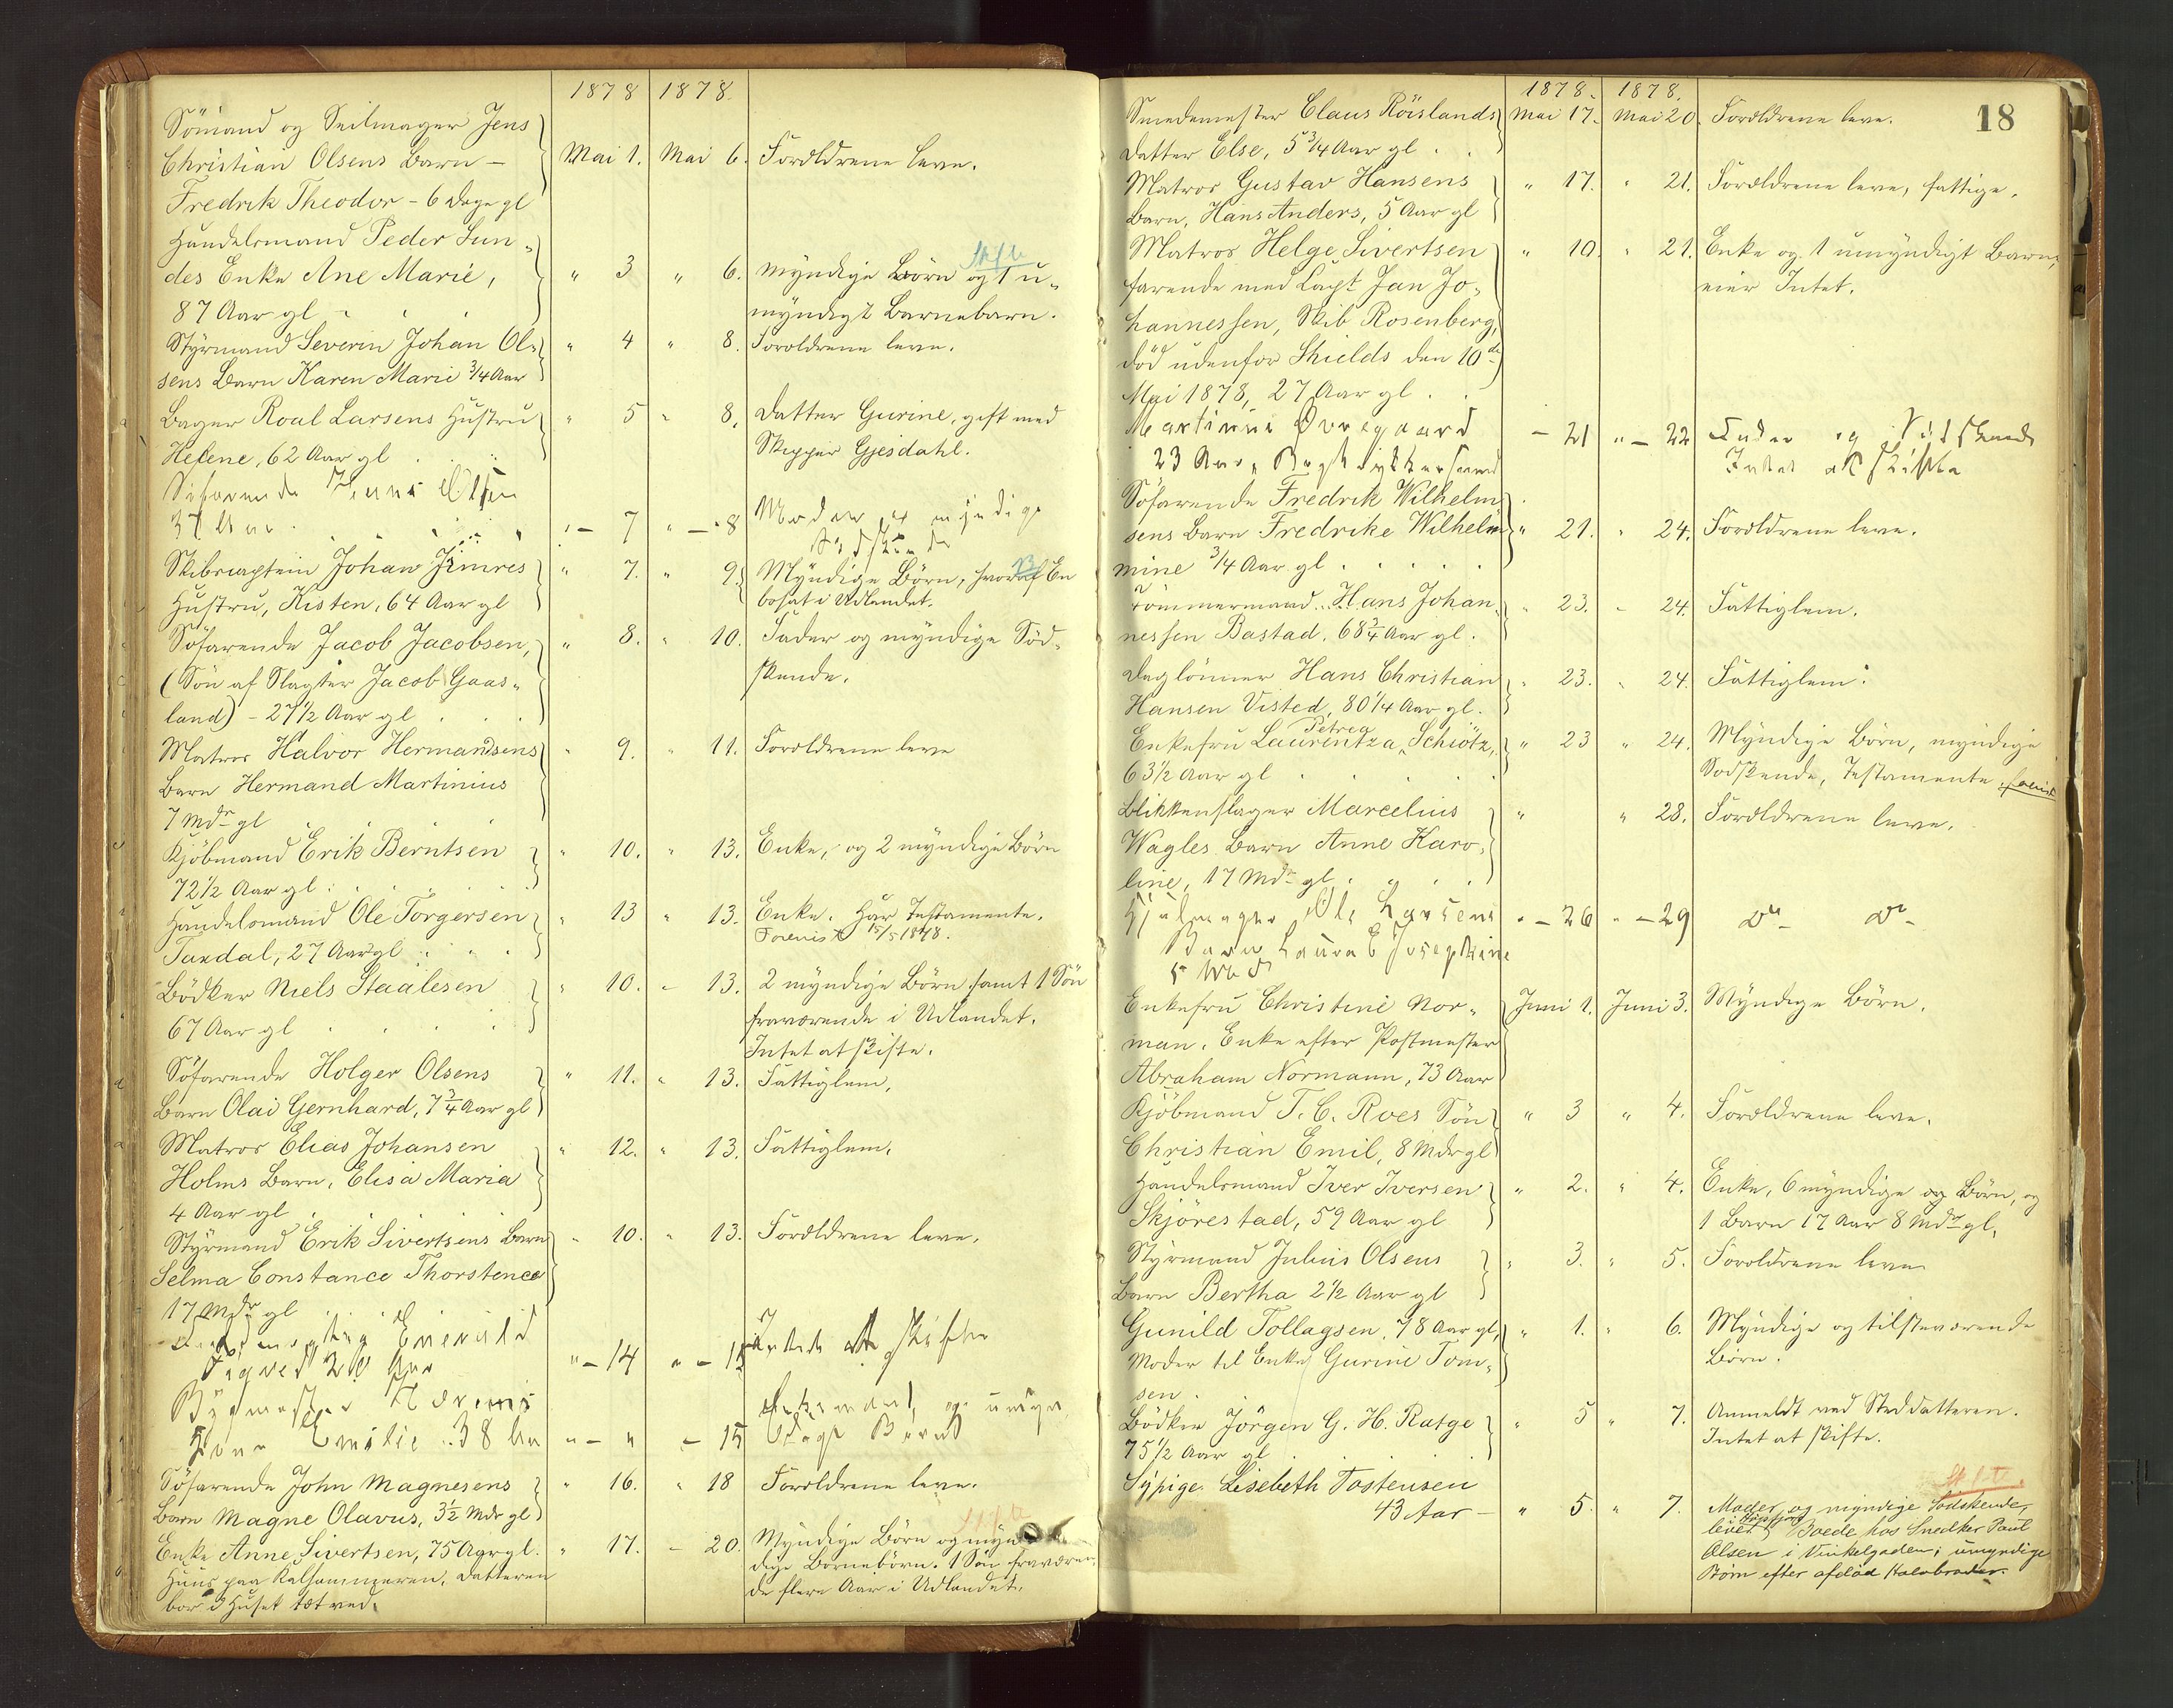 1878 1878.
Sömand og Seilmager Jens
Christian Olsens Barn – Mai 1. Mai 6. Forældrene leve.
Fredrik Theodor – 6 Dage gl
Handelsmand Peder Lun-
des Enke Ane Marie, " 3 " 6. myndige Børn og 1 u- Skifte
87 Aar gl myndigt Barnebarn.
Styrmand Severin Johan Ol- " 4 " 8. Forældrene leve.
sens Barn Karen Marie 3/4 Aar
Bager Roal Larsens Hustru " 5 " 8. Datter Gurine, gift med
Helene, 62 Aar gl Skipper Gjesdahl.
Söfarende Olsen
37 Aar " – 7 " – 8 Moder og myndige
Södskende
Skibscaptein Johan Jimres " 7. " 9. Myndige Børn, hvoraf En
Hustru, Kisten, 64 Aar gl bosat i Udlandet.
Söfarende Jacob Jacobsen, " 8. " 10. Fader og myndige Söd-
(Sön af Slagter Jacob Gaas- skende.
land) – 27 1/2 Aar gl
Matros Halvor Hermandsens " 9. " 11. Forældrene leve
Barn Hermand Martinius
7 Mdr gl
Kjöbmand Erik Berntsen " 10. " 13. Enke, og 2 myndige Börn
72 1/2 Aar gl.
Handelsmand Ole Torgersen " 13 " 13. Enke. Har Testamente.
Tandal, 27 Aar gl Forevist 15/5 1878.
Bödker Niels Staalesen " 10. " 13. 2 myndige Börn samt 1 Sön
67 Aar gl fraværende i Udlandet.
Intet at skifte.
Söfarende Holger Olsens " 11. " 13. Fattiglem.
Barn Olai Gernhard, 7 3/4 Aar gl
Matros Elias Johansen " 12. " 13. Fattiglem.
Holms Barn, Elisa Maria
4 Aar gl
Styrmand Erik Sivertsens Barn " 10. " 13. Forældrene leve.
Selma Constance Thorstence
17 Mdr gl
Enevald
20 Aar " – 14 " – 15 Intet at skifte
Bygmester
Kone Emilie 38 Aar " – " – 15 Barn
Söfarende John Magnesens " 16. " 18 Forældrene leve.
Barn Magne Olavus, 3 1/2 Mdr gl
Skifte
Enke Anne Sivertsen, 75 Aar gl. " 17. – 20. Myndige Börn og myn-
Huus paa Kalhammeren, Datteren dige Börnebörn. 1 Sön fraværen-
bor i Huset tæt ved. de flere Aar i Udlandet.
18
1878. 1878.
Smedemester Claus Röislands Mai 17. Mai 20. Forældrene leve.
Datter Else, 5 3/4 Aar gl
Matros Gustav Hansens " 17. " 21. Forældrene leve, fattige.
Barn, Hans Anders, 5 Aar gl
Matros Helge Sivertsen " 10. " 21. Enke og 1 umyndigt Barn,
farende med Capt Jan Jo- eier Intet.
hannessen, Skib Rosenberg,
död udenfor Shields den 10de
Mai 1878, 27 Aar gl.
Martinus Övregaard – 21 " – 22 Fader og Södskende
23 Aar, Bogtrykkersvend Intet at skifte
Söfarende Fredrik Wilhelm-
sens Barn Fredrike Wilhelm- " 21. " 24. Forældrene leve.
mine 3/4 Aar gl
Tömmermand Hans Johan- " 23. " 24. Fattiglem.
nessen Bastad, 68 3/4 Aar gl.
Daglönner Hans Christian " 23. " 24. Fattiglem.
Hansen Visted, 80 1/4 Aar gl.
Petrea
Enkefru Laurentza Schiötz, " 23 " 24. Myndige Börn, myndige
63 1/2 Aar gl Södskende, Testamente
Blikkenslager Marcelius " " 28. Forældrene leve.
Wagles Barn Anne Karo-
line, 17 Mdr gl
Hjulmager Ole Larsens " – 26 " – 29 Do Do
Barn Laura E Josephine
5 Md
Enkefru Christine Nor- Juni 1. Juni 3. Myndige Börn.
man. Enke efter Postmester
Abraham Normann, 73 Aar
Kjöbmand T. C. Roes Sön " 3 " 4. Forældrene leve.
Christian Emil, 8 Mdr gl
Handelsmand Iver Iversen " 2. " 4. Enke, 6 myndige og Börn, og
Skjörestad, 59 Aar gl 1 Barn 17 Aar 8 Mdr gl.
Styrmand Julius Olsens " 3. " 5. Forældrene leve
Barn Bertha 2 1/2 Aar gl
Gunild Tollagsen, 78 Aar gl, " 1. " 6. Myndige og tilstæværende
Moder til Enke Gurine Tom- Börn.
sen.
Bödker Jörgen G. H. Ratge " 5 " 7. Anmeldt ved Steddatteren.
75 1/2 Aar gl Intet at skifte.
Skifte.
Sypige Lisebeth Tostensen
43 Aar – " 5. " 7. Moder og myndige Södskende,
lever Boede hos Snedker Paul
Olsen i Vinkelgaden; umyndige
Börn efter afdöd Halvbroder.